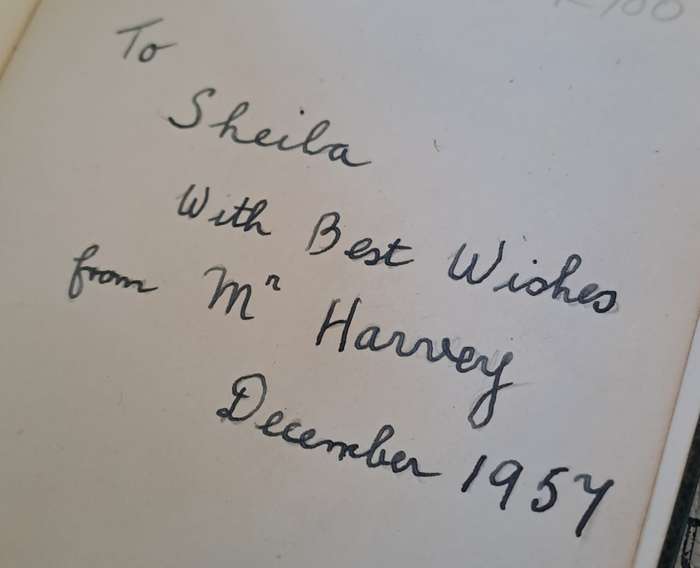 To
Sheila
With Best Wishes
from Mr Harvey
December 1957